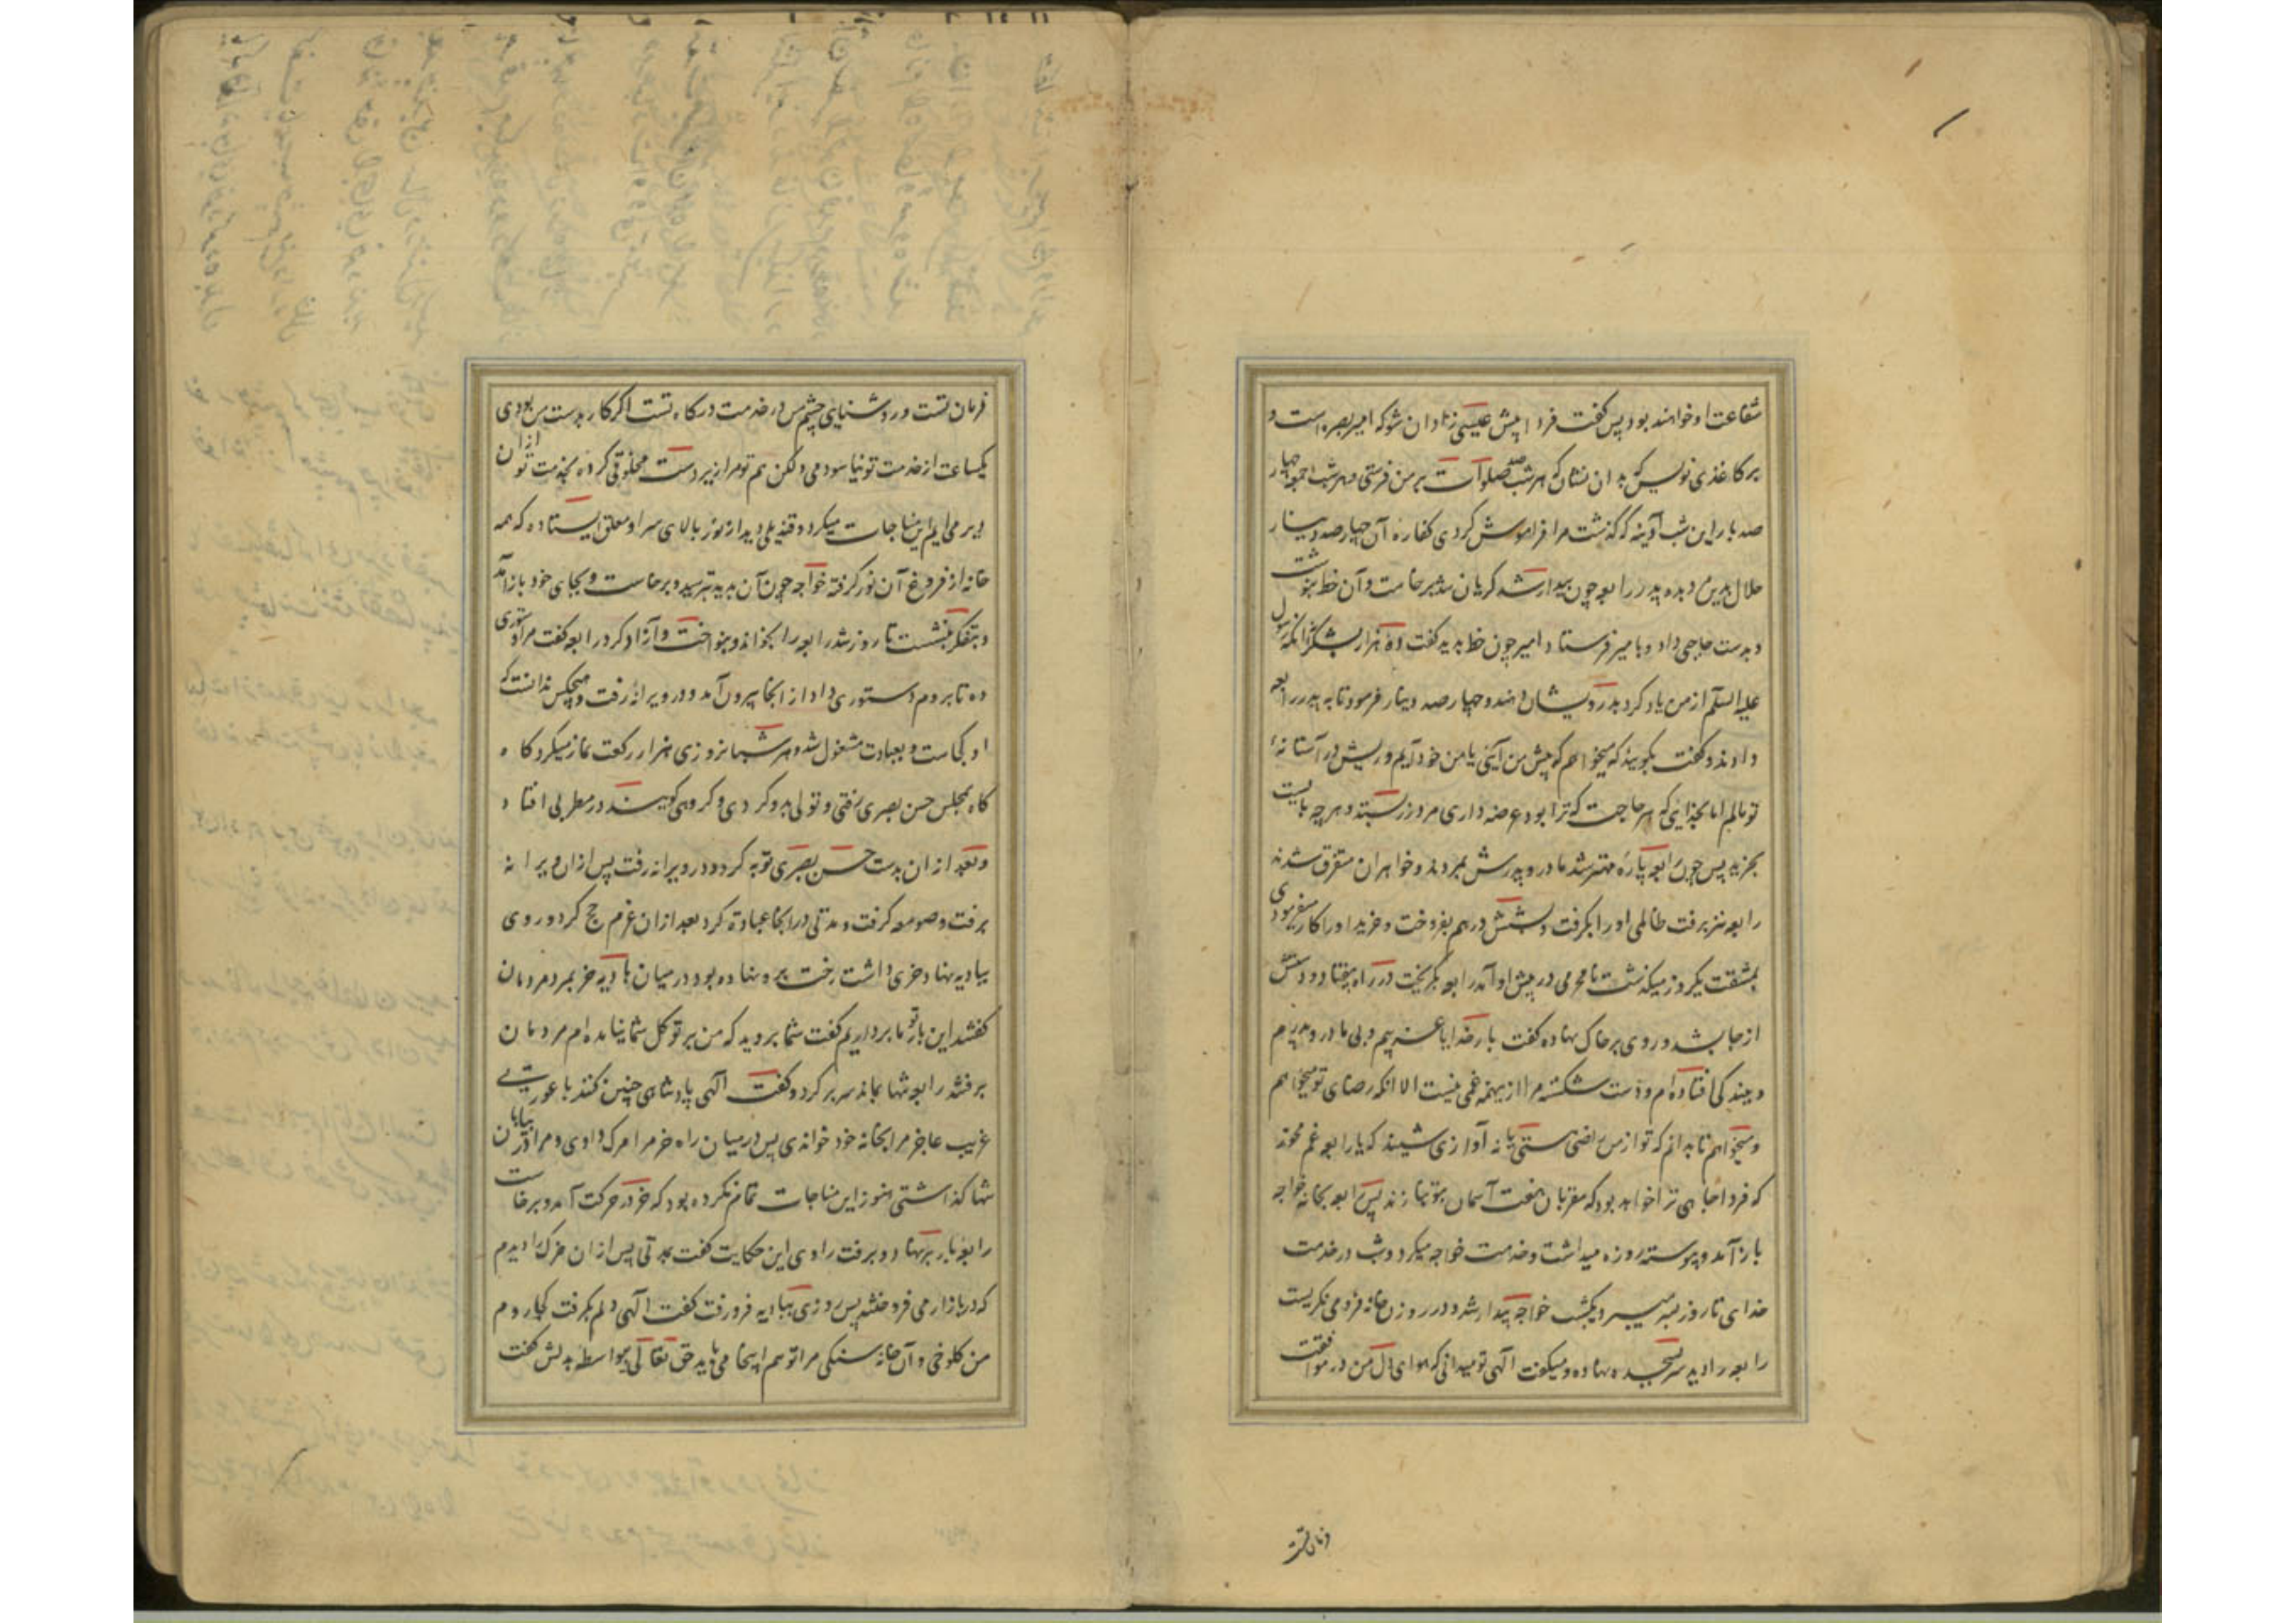 شفاعت او خواهند بود پس گفت فردا پیش عیسی زادان شو که امیر بصره است و
بر کاغذی نویس که بدان نشان که هر شب صد صلوات بر من فرستی و هر شب جمعه چهار
صد بار این شب آدینه که گذشت مرا فراموش کردی کفاره آن چهار صد دینار
حلال بدین مرد ده پدر رابعه چون بیدار شد گریان شد برخاست و آن خط بنوشت
و بدست حاجبی داد و بامیر فرستاد امیر چون خط بدید گفت ده هزار بشکرانه آنکه رسول
علیه السلم از من یاد کرد بدرویشان دهند و چهار صد دینار فرمود تا به پدر رابعه
دادند و گفت بگویید که میخواهم که پیش من آیی یا من خود آیم و ریش در آستانهٔ
تو مالم اما بخدای که هر حاجت که ترا بود عرضه داری مرد زر بستد و هر چه بایست
بخرید پس چون رابعه پاره مهتر شد مادر و پدرش بمردند و خواهران متفرق شدند
رابعه نیز برفت ظالمی او را بگرفت و بشش درهم بفروخت و خرید او را کار میفرمودی
بمشقت یکروز میگذشت نامحرمی در پیش او آمد رابعه بگریخت در راه بیفتاد و دستش
از جا بشد و روی بر خاک نهاد و گفت بار خدایا غریبم و بی مادر و پدرم
و ببندگی افتاده ام و دست شکسته مرا ازینهمه غمی نیست الا انکه رضای تو میخواهم
و میخواهم تا بدانم که تو از من راضی هستی یا نه آوازی شنید که یا رابعه غم مخور
که فردا جاهی ترا خواهد بود که مقربان هفت آسمان بتو بنازند پس رابعه بخانه خواجه
باز آمد و پیوسته روزه میداشت و خدمت خواجه میکرد و شب در خدمت
خدای تا روز بسر میبرد یکشب خواجه بیدار شد و در روزن خانه فرو می نگریست
رابعه را دید سر بسجده نهاده و میگفت الهی تو میدانی که هوای دل من در موافقت
فرمان تست
فرمان تست و روشنایی چشم من در خدمت درگاه تست اگر کار بدست من بودی
یکساعت از خدمت تو نیاسودمی ولکن هم تو مرا زیر دست مخلوقی کرده بخدمت تو از آن
دیر می ایم این مناجات میکرد و قندیلی دید از نور بالای سر او معلق ایستاده که همه
خانه از فروغ آن نور گرفته خواجه چون آن بدید بترسید و برخاست و بجای خود باز آمد
و بتفکر بنشست تا روز شد رابعه را بخواند و بنواخت و آزاد کرد رابعه گفت مرا دستوری
ده تا بروم دستوری داد از انجا بیرون آمد و در ویرانهٔ رفت و هیچکس ندانست که
او کجاست و بعبادت مشغول شد و هر شبانروزی هزار رکعت نماز میکرد و گاه
گاه بمجلس حسن بصری رفتی و تولی بدو کردی و گروهی گویند در مطربی افتاد
و بعد از ان بدست حسن بصری توبه کرد و در ویرانه رفت پس ازان ویرانه
برفت و صومعه گرفت و مدتی در انجا عبادة کرد بعد از ان عزم حج کرد و روی
ببادیه نهاد و خری داشت رخت برو نهاده بود در میان بادیه خر بمرد مردمان
گفتند این بار تو ما برداریم گفت شما بروید که من بر توکل شما نیامده ام مردمان
برفتند رابعه تنها بماند سر بر کرد و گفت الهی پادشاهی چنین کنند با عورتی
غریب عاجز مرا بخانه خود خوانده ی پس در میان راه خر مرا مرگ دادی و مرا در بیابان
تنها گذاشتی هنوز این مناجات تمام نکرده بود که خر در حرکت آمد و برخاست
رابعه بار بر نهاد و برفت راوی این حکایت گفت بمدتی پس از ان خرک را دیدم
که در بازار می فروختند پس روزی ببادیه فرو رفت گفت الهی دلم بگرفت کجا روم
من کلوخی و آن خانه سنگی مرا تو هم اینجا می باید حق تعالی بیواسطه بدلش گفت